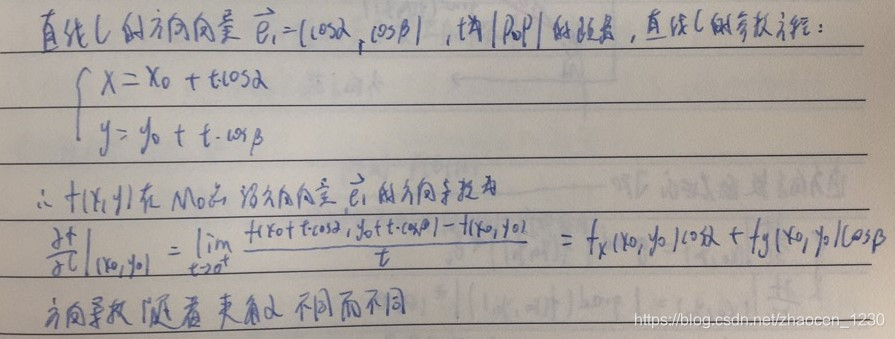 直线l的方向向量 e₁=(cosα, cosβ), t为|P₀P|的距离, 直线l的参数方程:
x = x₀ + tcosα
y = y₀ + t·cosβ
∴ f(x,y)在M₀点沿方向向量 e₁ 的方向导数为
∂f/∂l|(x₀,y₀) = lim t→0⁺ f(x₀+t·cosα, y₀+t·cosβ)-f(x₀,y₀) / t = fx(x₀,y₀)cosα + fy(x₀,y₀)cosβ
方向导数随着夹角α不同而不同
https://blog.csdn.net/zhaocen_1230